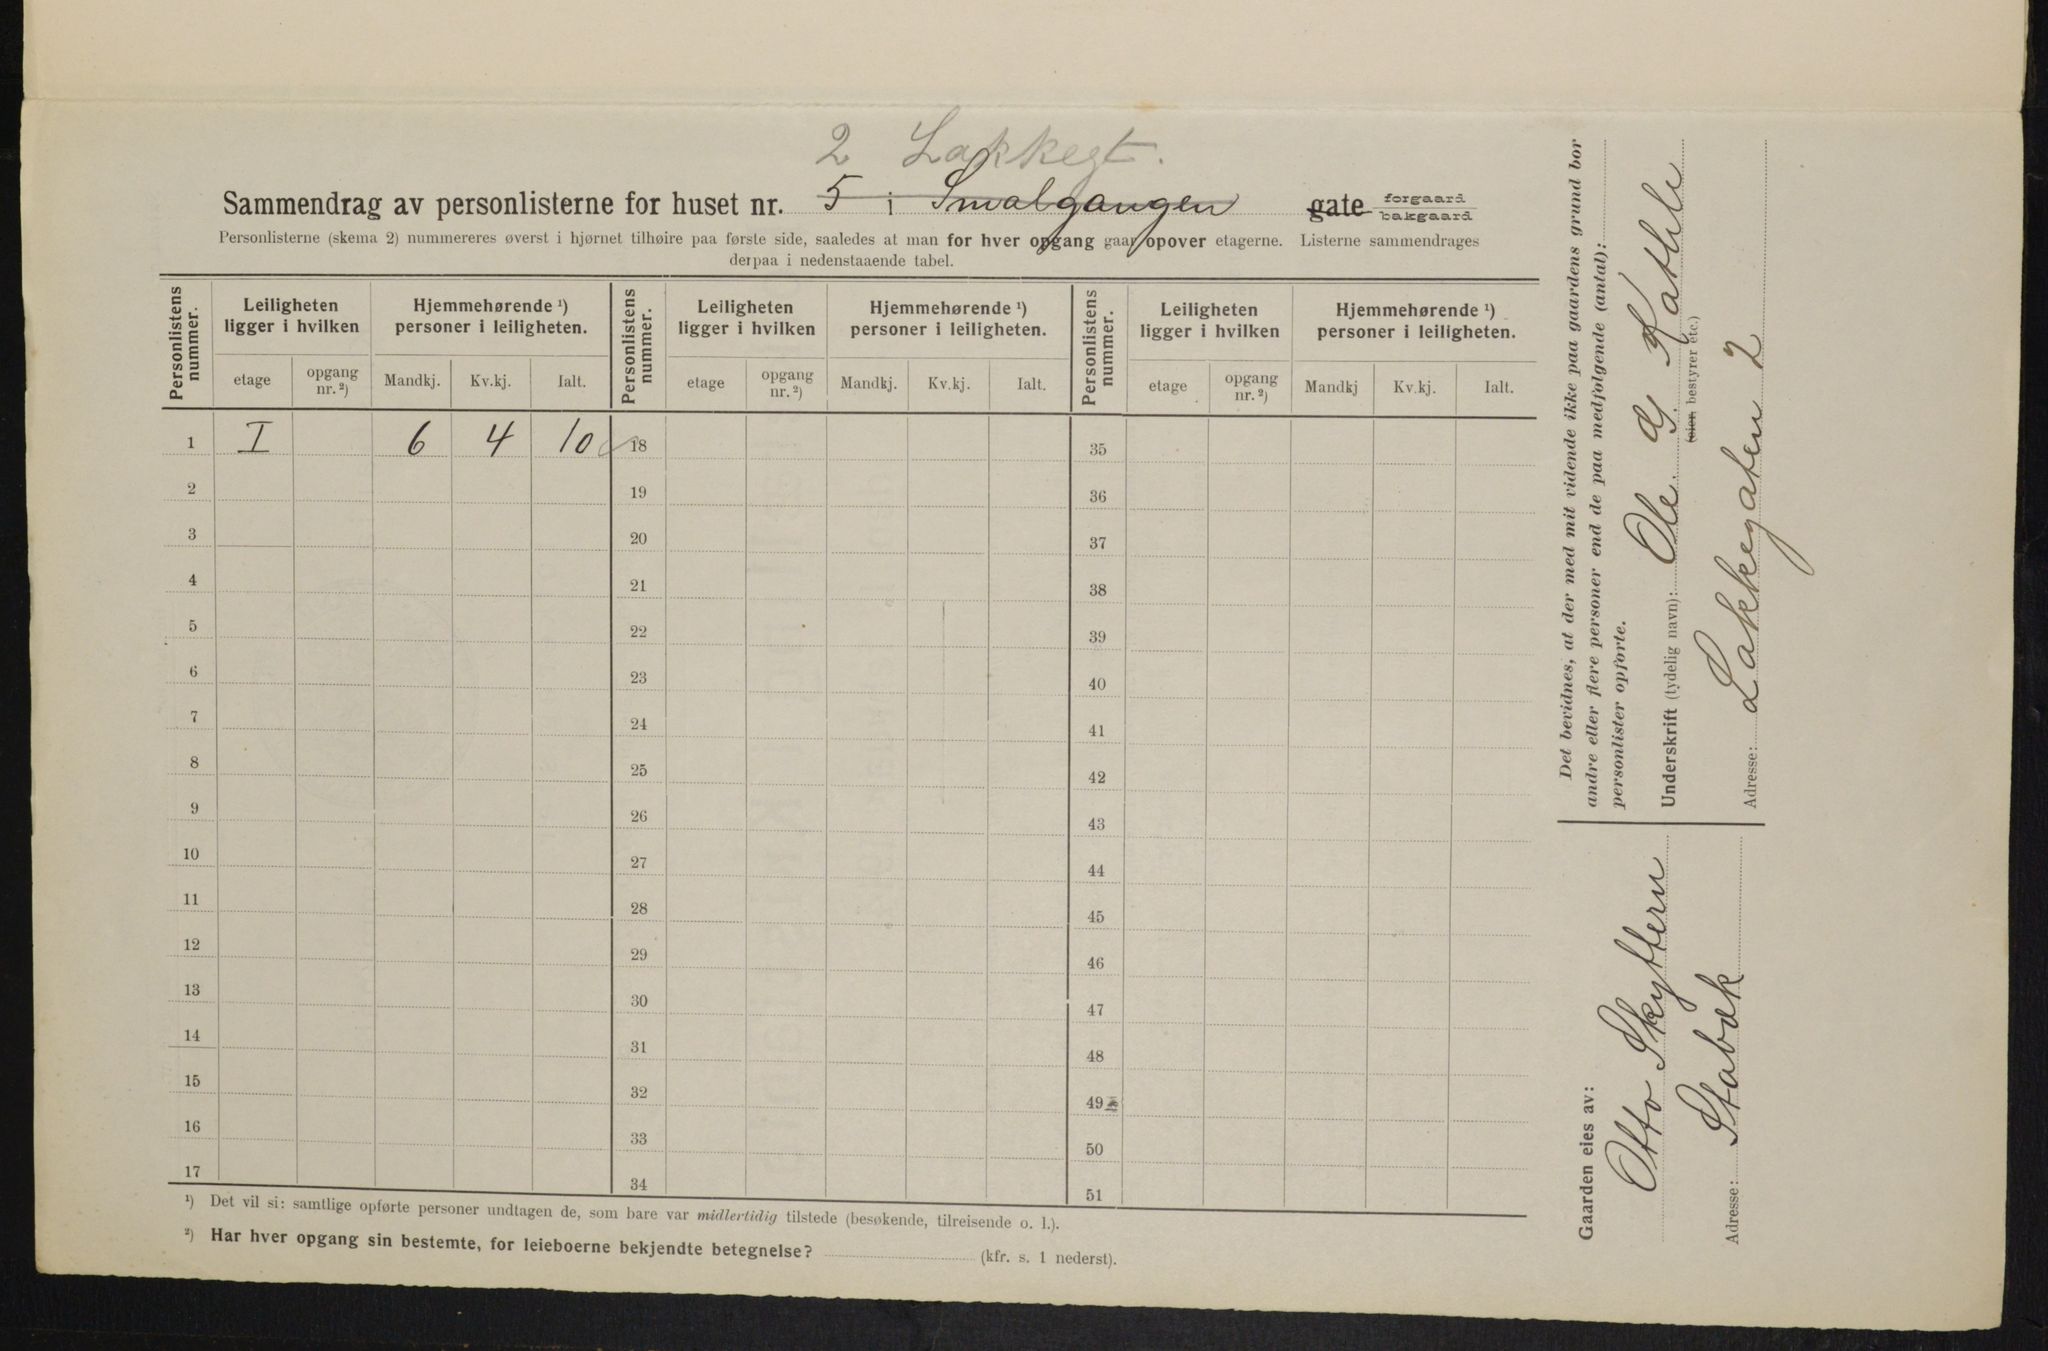 2 Lakkegt.
Sammendrag av personlisterne for huset nr. 5 i Smalgangen gate forgaard bakgaard
Personlisterne (skema 2) nummereres øverst i hjørnet tilhøire paa første side, saaledes at man for hver opgang gaar opover etagerne. Listerne sammendrages
derpaa i nedenstaaende tabel.
Personlistens nummer. Leiligheten ligger i hvilken Hjemmehørende ¹) personer i leiligheten. Personlistens nummer. Leiligheten ligger i hvilken Hjemmehørende ¹) personer i leiligheten. Personlistens nummer. Leiligheten ligger i hvilken Hjemmehørende ¹) personer i leiligheten.
etage opgang nr. ²) Mandkj. Kv.kj. Ialt. etage opgang nr. ²) Mandkj. Kv.kj. Ialt. etage opgang nr. ²) Mandkj Kv.kj. Ialt.
1 I 6 4 10 18 35
2 19 36
3 20 37
4 21 38
5 22 39
6 23 40
7 24 41
8 25 42
9 26 43
10 27 44
11 28 45
12 29 46
13 30 47
14 31 48
15 32 49
16 33 50
17 34 51
¹) Det vil si: samtlige opførte personer undtagen de, som bare var midlertidig tilstede (besøkende, tilreisende o. l.).
²) Har hver opgang sin bestemte, for leieboerne bekjendte betegnelse? (kfr. s. 1 nederst).
Det bevidnes, at der med mit vidende ikke paa gaardens grund bor
andre eller flere personer end de paa medfølgende (antal):
personlister opførte.
Underskrift (tydelig navn): Ole
(eier, bestyrer etc.)
Adresse: Lakkegaten 2
Gaarden eies av:
Otto Skyttern
Adresse: Stabæk